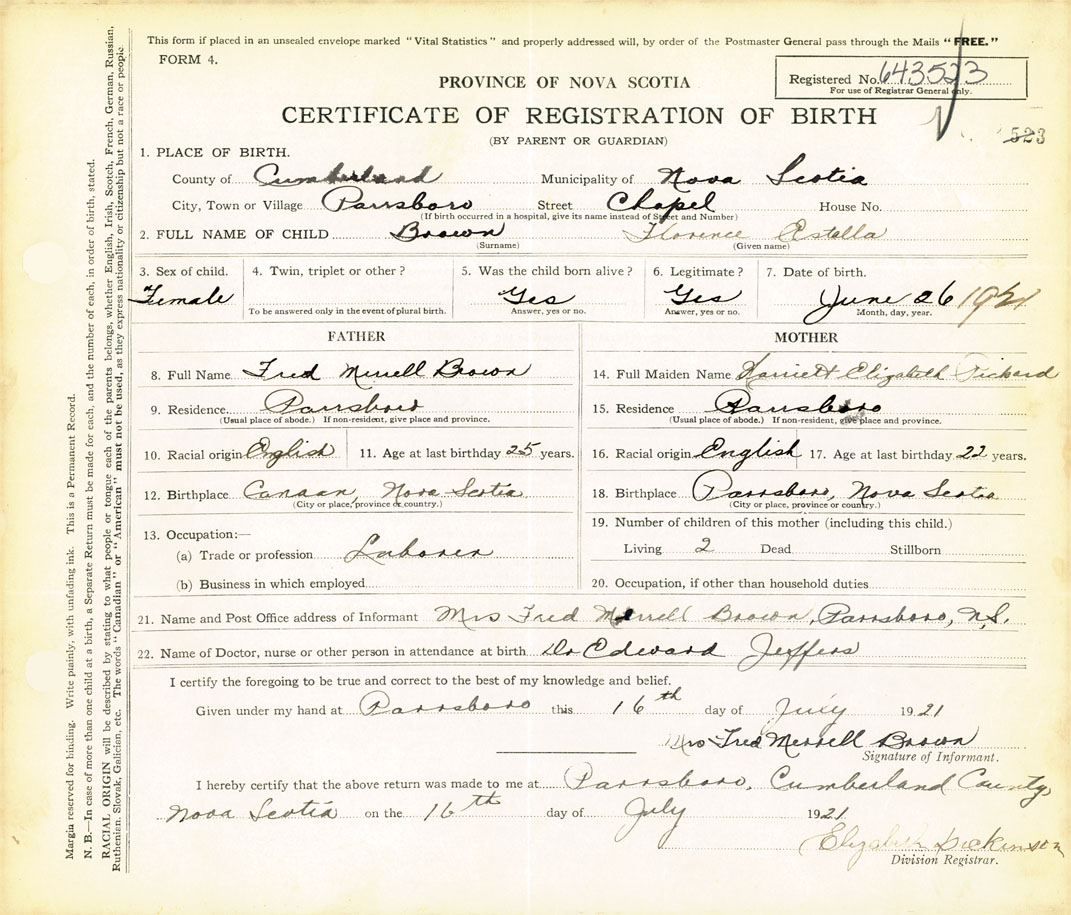 This form if placed in an unsealed envelope marked "Vital Statistics" and properly addressed will, by order of the Postmaster General pass through the Mails "FREE."
FORM 4.
Registered No. 643523
For use of Registrar General only.
PROVINCE OF NOVA SCOTIA
CERTIFICATE OF REGISTRATION OF BIRTH
523
(BY PARENT OR GUARDIAN)
1. PLACE OF BIRTH.
County of Cumberland Municipality of Nova Scotia
City, Town or Village Parrsboro Street Chapel House No.
(If birth occurred in a hospital, give its name instead of Street and Number)
2. FULL NAME OF CHILD Brown Florence Estella
(Surname) (Given name)
3. Sex of child. 4. Twin, triplet or other? 5. Was the child born alive? 6. Legitimate? 7. Date of birth.
Female Yes Yes June 26 1921
To be answered only in the event of plural birth. Answer, yes or no. Answer, yes or no. Month, day, year.
FATHER
8. Full Name Fred Merrell Brown
9. Residence. Parrsboro
(Usual place of abode.) If non-resident, give place and province.
10. Racial origin English 11. Age at last birthday 25 years.
12. Birthplace Canaan, Nova Scotia
(City or place, province or country.)
13. Occupation:—
(a) Trade or profession Laborer
(b) Business in which employed
MOTHER
14. Full Maiden Name Harriett Elizabeth Pickard
15. Residence Parrsboro
(Usual place of abode.) If non-resident, give place and province.
16. Racial origin English 17. Age at last birthday 22 years.
18. Birthplace Parrsboro, Nova Scotia
(City or place, province or country.)
19. Number of children of this mother (including this child.)
Living 2 Dead Stillborn
20. Occupation, if other than household duties
21. Name and Post Office address of Informant Mrs Fred Merrell Brown, Parrsboro, N.S.
22. Name of Doctor, nurse or other person in attendance at birth Dr Edward Jeffers
I certify the foregoing to be true and correct to the best of my knowledge and belief.
Given under my hand at Parrsboro this 16th day of July 1921
Mrs Fred Merrell Brown
Signature of Informant.
I hereby certify that the above return was made to me at Parrsboro, Cumberland County,
Nova Scotia on the 16th day of July 1921
Elizabeth Dickinson
Division Registrar.
Margin reserved for binding. Write plainly, with unfading ink. This is a Permanent Record.
N. B.—In case of more than one child at a birth, a Separate Return must be made for each, and the number of each, in order of birth, stated.
RACIAL ORIGIN will be described by stating to what people or tongue each of the parents belongs, whether English, Irish, Scotch, French, German, Russian,
Ruthenian, Slovak, Galician, etc. The words "Canadian" or "American" must not be used, as they express nationality or citizenship but not a race or people